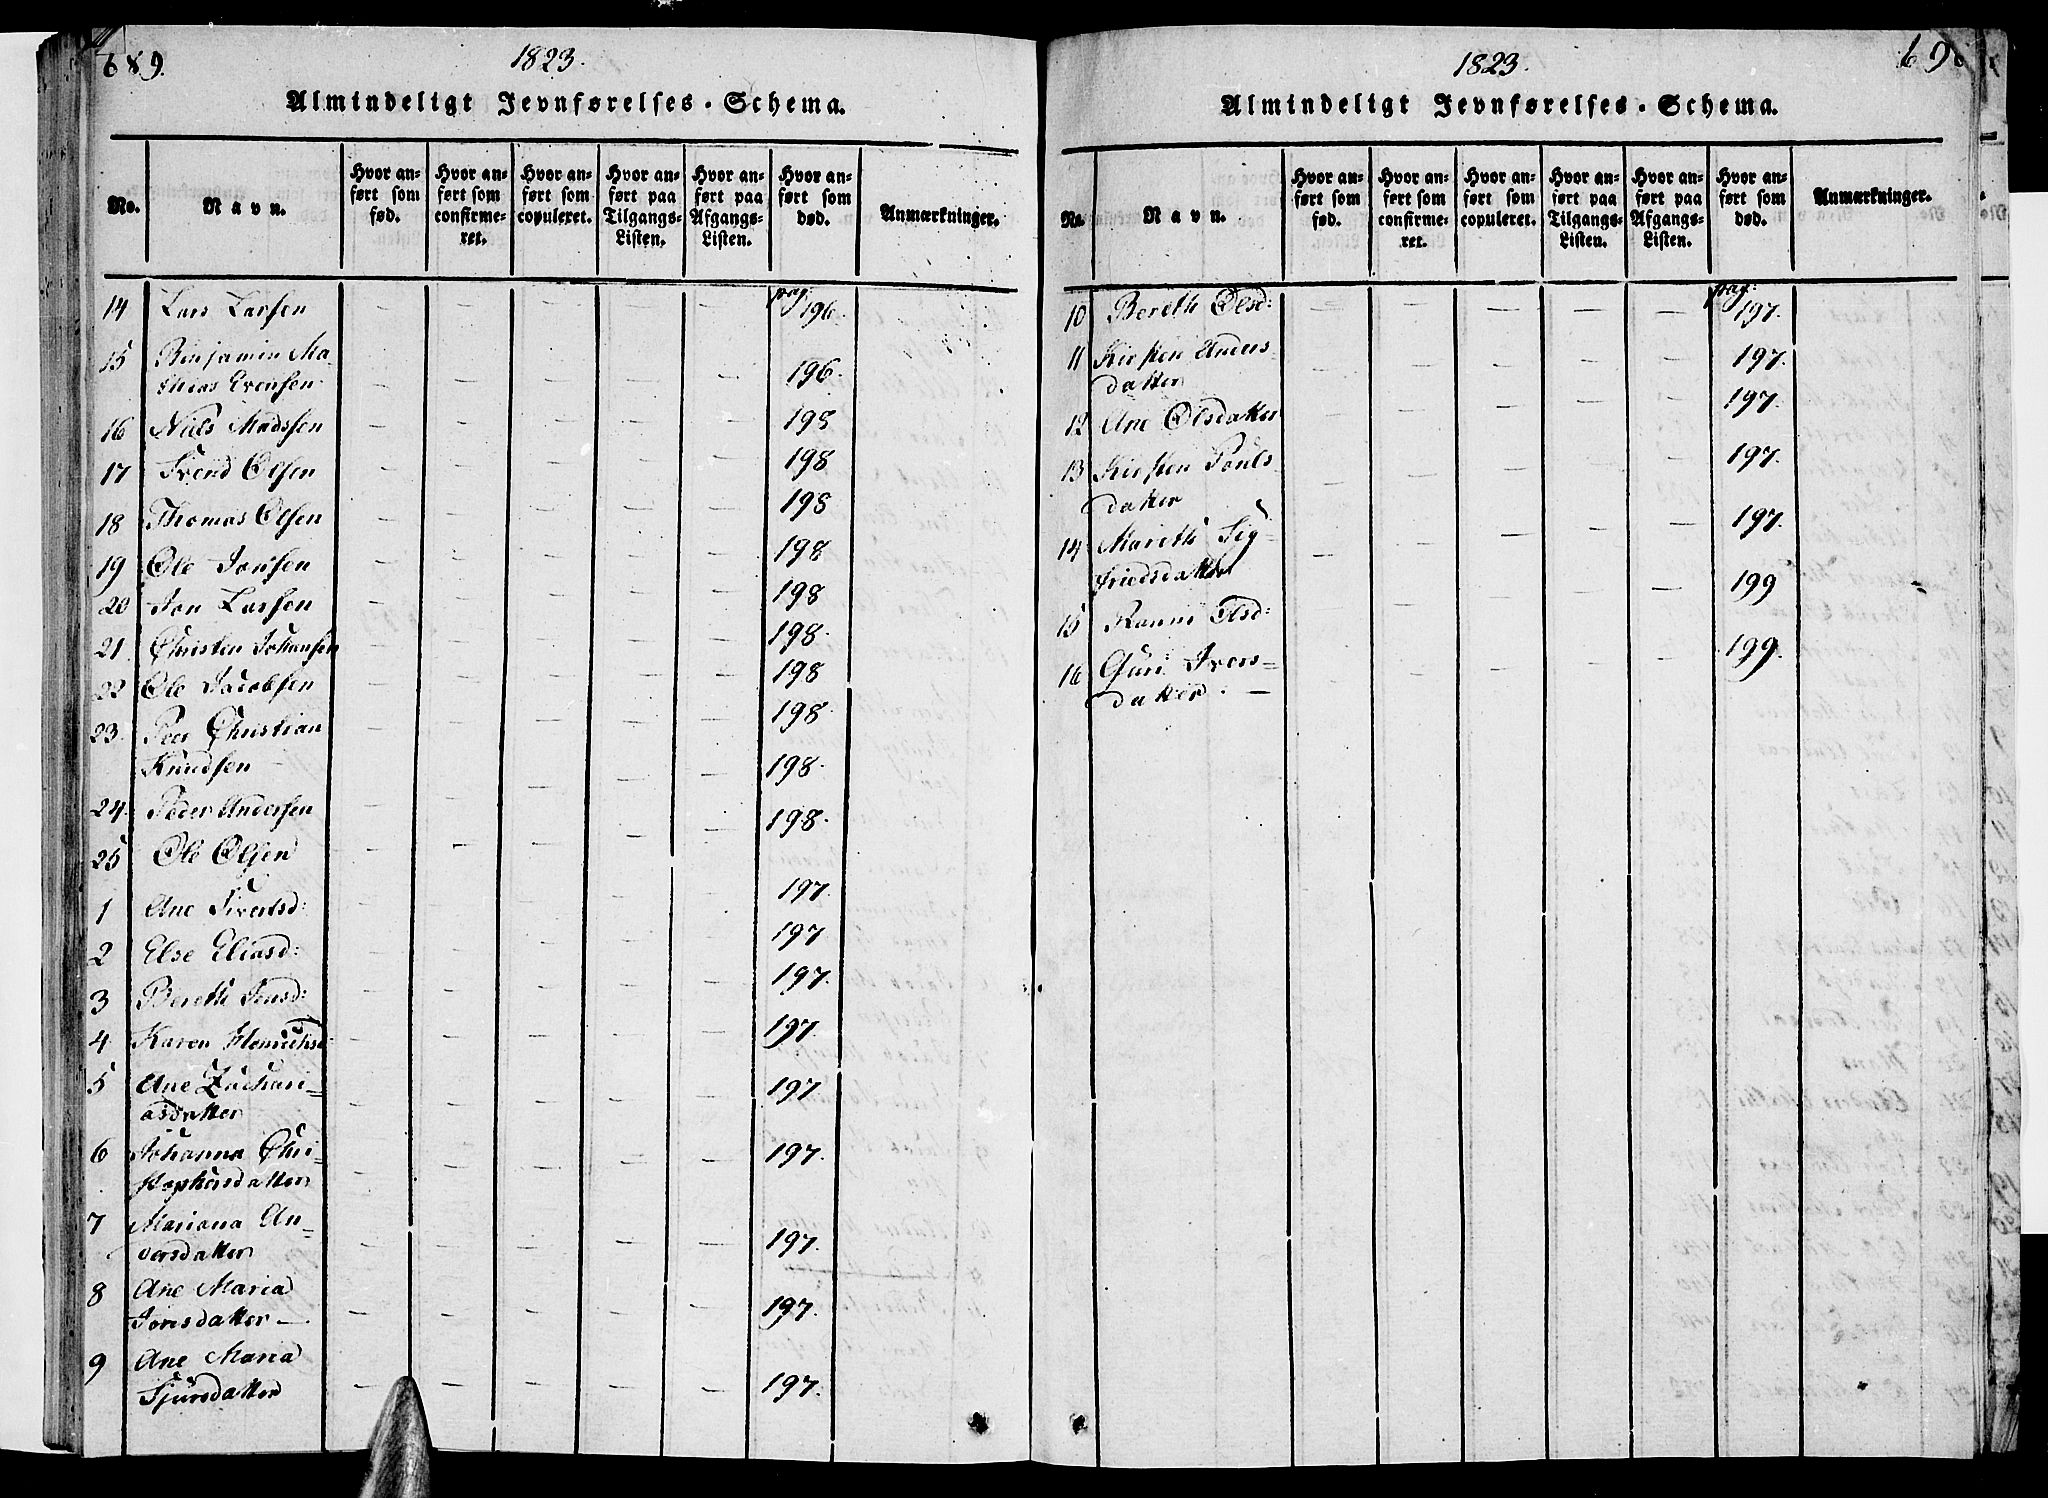 689.
1823.
Almindeligt Jevnførelses-Schema.
No.
Navn.
Hvor an-
ført som
fød.
Hvor an-
ført som
confirme-
ret.
Hvor an-
ført som
copuleret.
Hvor an-
ført paa
Tilgangs-
Listen.
Hvor an-
ført paa
Afgangs-
Listen.
Hvor an-
ført som
død.
Anmærkninger.
14 Lars Larsen — — — — — pag: 196.
15 Benjamin Ma-
thias Evensen — — — — — 196.
16 Niels Madssen — — — — — 198
17 Svend Olsen — — — — — 198
18 Thomas Olsen — — — — — 198
19 Ole Jonsen — — — — — 198
20 Jon Larsen — — — — — 198
21. Christen Johansen — — — — — 198.
22 Ole Jacobsen — — — — — 198
23. Peer Christian — — — — — 198.
Knudsen — — — 198.
24. Peder Andersen — — — — — 198.
25 Ole Olsen — — — — —
1 Ane Sivertsd: — — — — — 197.
2 Else Eliasd: — — — — — 197
3 Bereth Jensd: — — — — — 197.
4 Karen Henrichsd: — — — — — 197.
5 Ane Zachari-
asdatter — — — — — 197.
6 Johanna Chri-
stophersdatter — — — — — 197.
7 Mariana An-
dersdatter — — — — — 197.
8 Ane Maria
Jonsdatter — — — — — 197.
9 Ane Maria
Sjursdatter — — — — — 197.
690
1823.
Almindeligt Jevnførelses-Schema.
No.
Navn.
Hvor an-
ført som
fød.
Hvor an-
ført som
confirme-
ret.
Hvor an-
ført som
copuleret.
Hvor an-
ført paa
Tilgangs-
Listen.
Hvor an-
ført paa
Afgangs-
Listen.
Hvor an-
ført som
død.
Anmærkninger.
10 Bereth Olsd: — — — — — pag: 197.
11 Kirsten Anders-
datter — — — — — 197.
12 Ane Olsdatter — — — — — 197.
13 Kirsten Pouls-
datter — — — — — 197.
14 Mareth Sig-
friedsdatter — — — — — 197.
15 Ranni Olsd: — — — — — 199
16 Guri Ivers-
datter. — — — — — — 199.